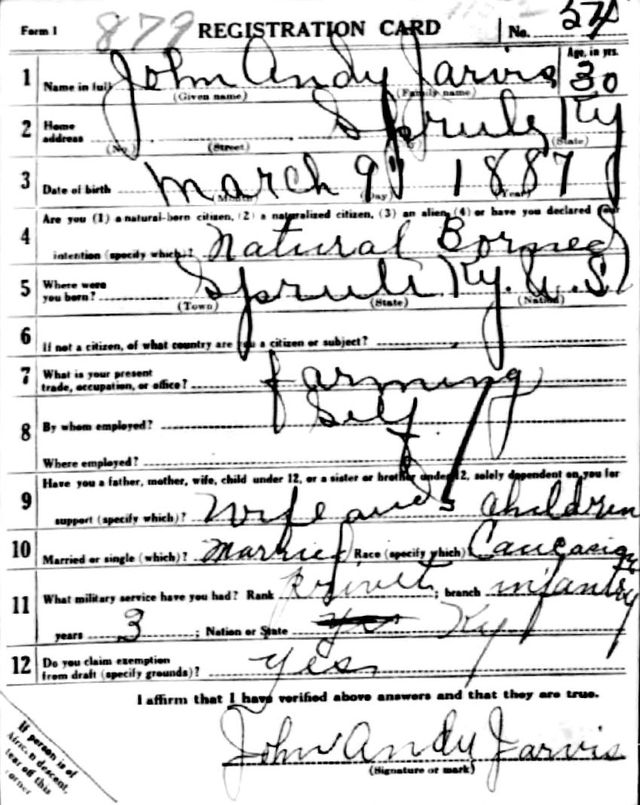 Form 1 879 REGISTRATION CARD No. 54
1 Name in full John Andy Jarvis Age, in yrs. 30
(Given name) (Family name)
2 Home address Sprule, Ky
(No.) (Street) (State)
3 Date of birth March 9 1887
(Month) (Day) (Year)
4 Are you (1) a natural-born citizen, (2) a naturalized citizen, (3) an alien, (4) or have you declared your
intention (specify which)? Natural Borned
5 Where were you born? Sprule Ky. U.S.
(Town) (State) (Nation)
6 If not a citizen, of what country are you a citizen or subject?
7 What is your present trade, occupation, or office? farming
8 By whom employed? Self
Where employed?
9 Have you a father, mother, wife, child under 12, or a sister or brother under 12, solely dependent on you for
support (specify which)? Wife and children
10 Married or single (which)? Married Race (specify which)? Caucasian
11 What military service have you had? Rank Privet; branch infantry
years 3; Nation or State Ky
12 Do you claim exemption from draft (specify grounds)? yes
I affirm that I have verified above answers and that they are true.
John Andy Jarvis
(Signature or mark)
If person is of
African descent,
tear off this
corner